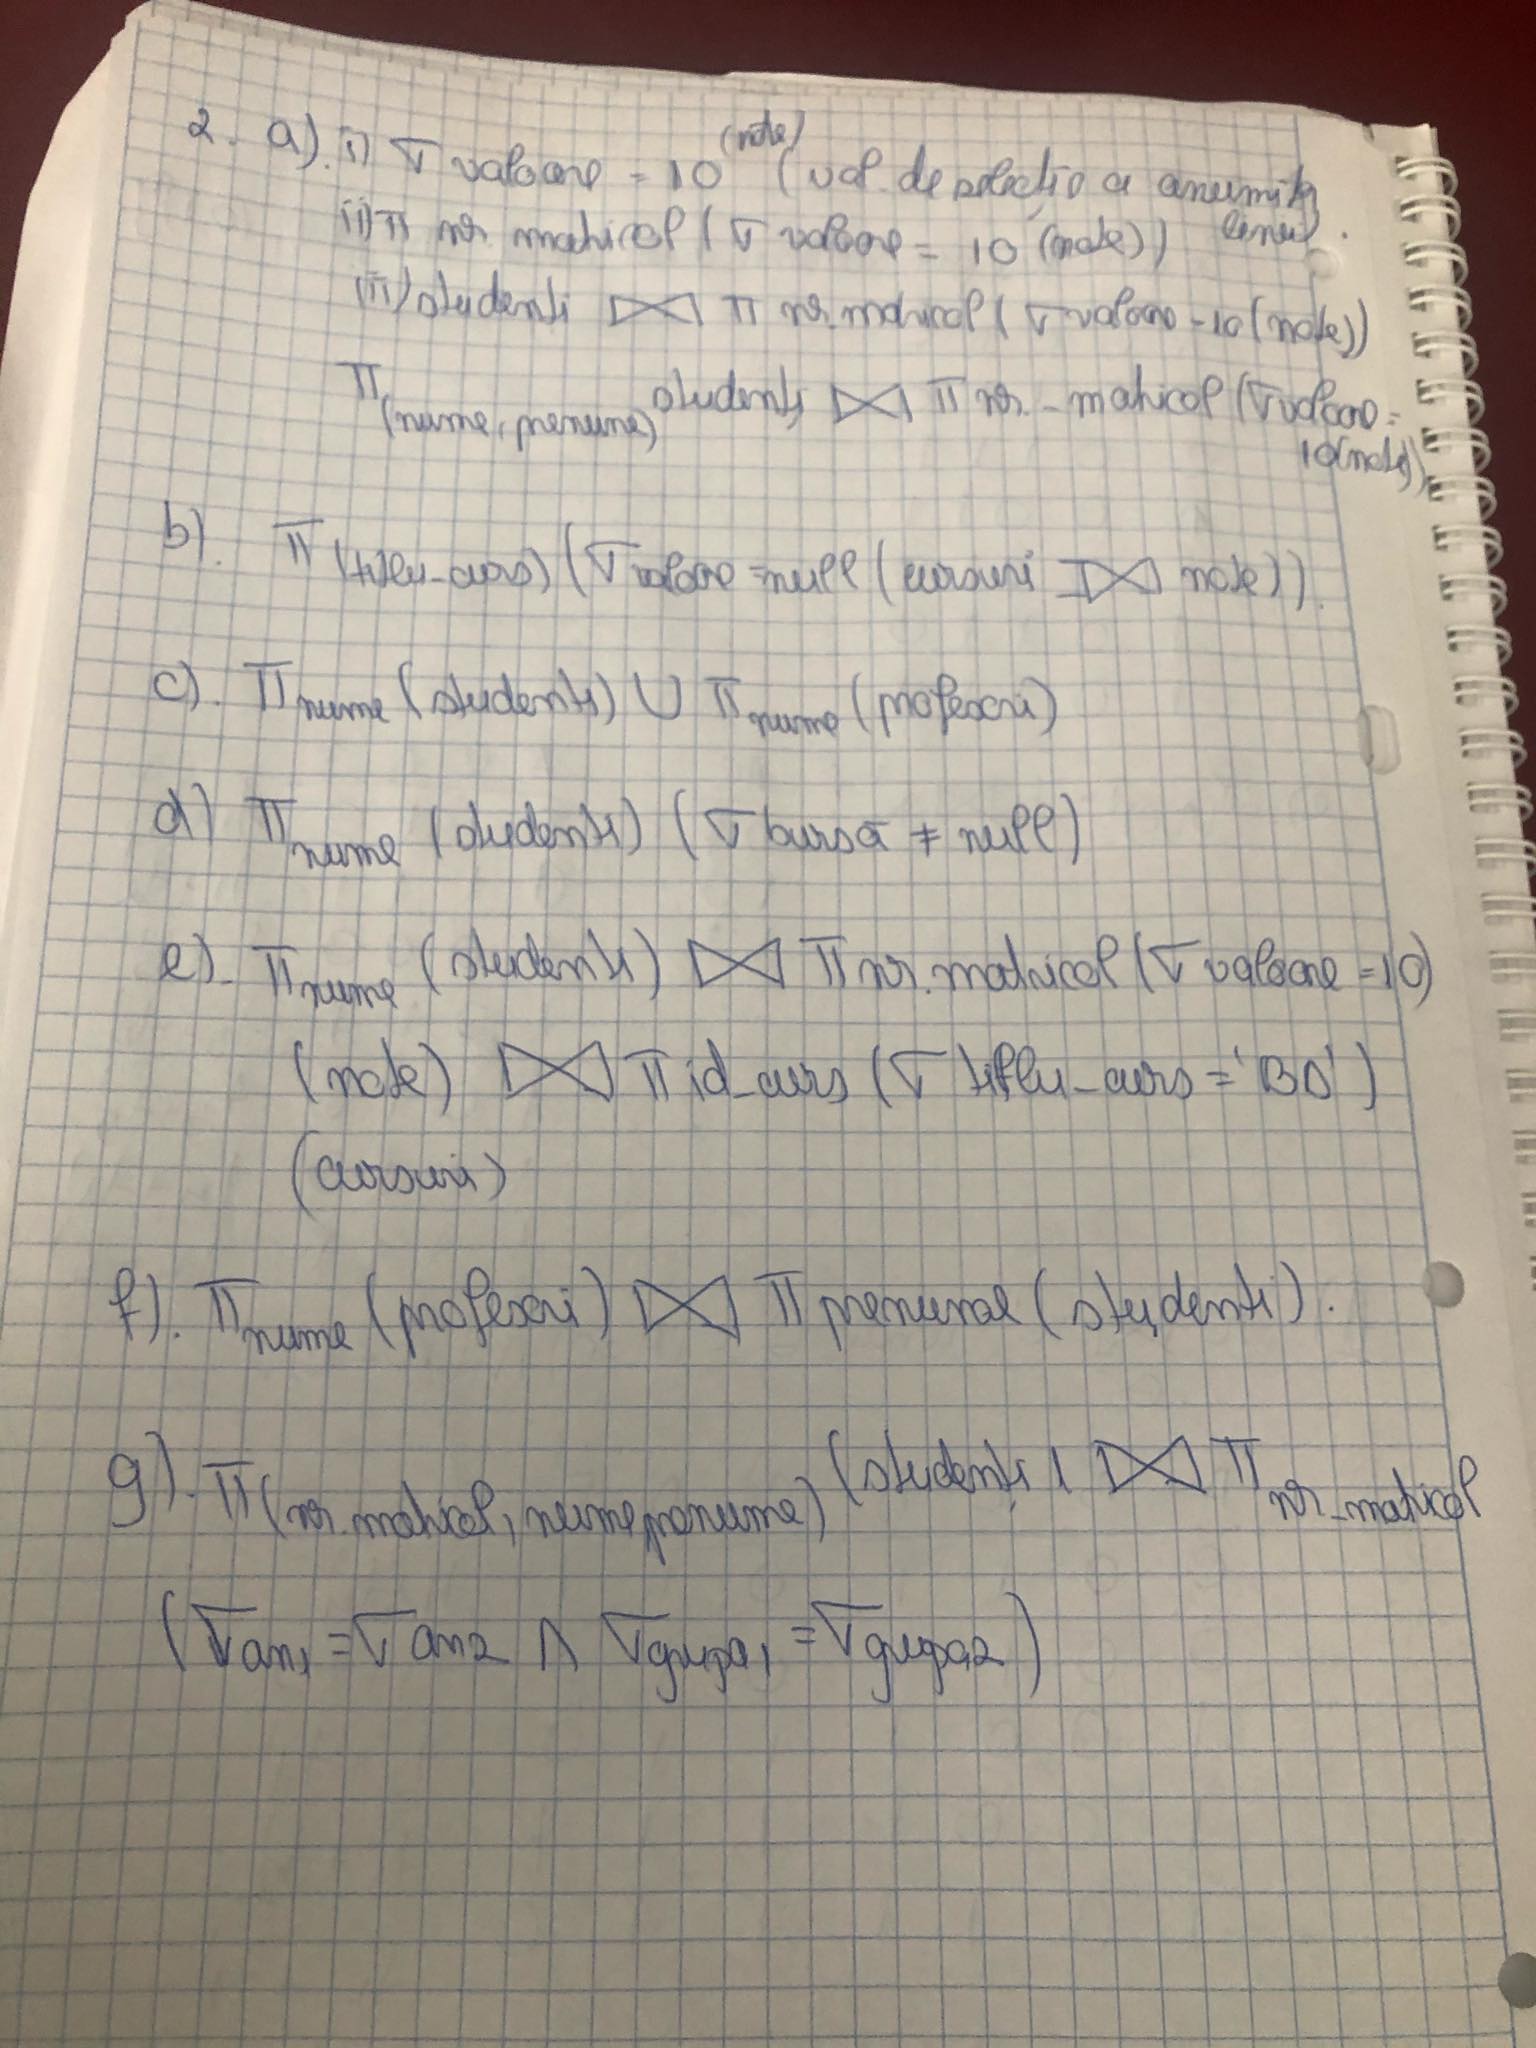 2. a). i) σ valoare = 10 (note) (val. de selecție a anumitor
linii).
ii) π nr. matricol (σ valoare = 10 (note))
iii) studenti ⋈ π nr. matricol (σ valoare = 10 (note))
π (nume, prenume) studenți ⋈ π nr_matricol (σ valoare =
10(note))
b). π (titlu_curs) (σ valoare = null (cursuri ⟕ note)).
c). π nume (studenti) ∪ π nume (profesori)
d) π nume (studenti) (σ bursă ≠ null)
e). π nume (studenti) ⋈ π nr. matricol (σ valoare = 10)
(note) ⋈ π id_curs (σ titlu_curs = 'BD')
(cursuri)
f). π nume (profesori) ⋈ π prenume (studenti).
g). π (nr. matricol, nume, prenume) (studenți 1 ⋈ π nr_matricol
(σ an1 = σ an2 ∧ σ grupa1 = σ grupa2)